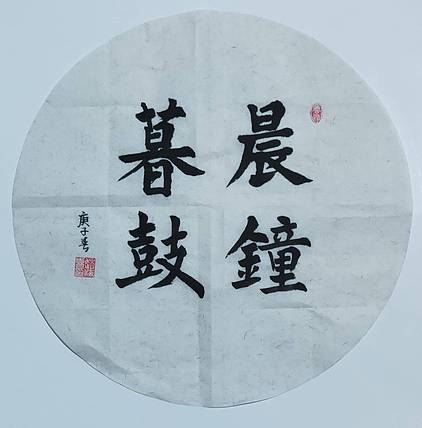 晨鐘
暮鼓
庚子春